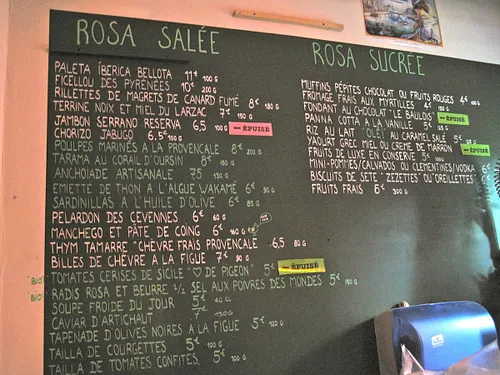 ROSA SALÉE
PALETA ÍBERICA BELLOTA 11€ 100 G
FICELLOU DES PYRENÉES 10€ 200 G
RILLETTES DE MAGRETS DE CANARD FUMÉ 8€ 180 G
TERRINE NOIX ET MIEL DU LARZAC 7€ 150
JAMBON SERRANO RESERVA 6,5 100 G — EPUISÉ
CHORIZO JABUGO 6.5€ 100 G
POULPES MARINÉS A LA PROVENCALE 8€ 200 G
TARAMA AU CORAIL D'OURSIN 8€ 150 G
ANCHOIADE ARTISANALE 7,5 130 G
EMIETTÉ DE THON A L'ALGUE WAKAMÉ 6€ 90 G
SARDINILLAS A L'HUILE D'OLIVE 6€ 85 G
PELARDON DES CEVENNES 6€ 60 G
MANCHEGO ET PÂTE DE COING 6€ 160 G
THYM TAMARRE "CHÈVRE FRAIS PROVENCALE 6,5 80 G
BILLES DE CHÈVRE A LA FIGUE 7€ 90 G
TOMATES CERISES DE SICILE "♡ DE PIGEON" 5€ — EPUISÉ
BIO RADIS ROSA ET BEURRE 1/2 SEL AUX POIVRES DES MONDES 5€ 150 G
BIO SOUPE FROIDE DU JOUR 5€ 40 CL
CAVIAR D'ARTICHAUT 7€ 130 G
TAPENADE D'OLIVES NOIRES A LA FIGUE 5€ 120 G
TAILLA DE COURGETTES 5€ 100 G
TAILLA DE TOMATES CONFITES. 5€ 100 G
ROSA SUCREE
MUFFINS PÉPITES CHOCOLAT OU FRUITS ROUGES 4€ 100 G
FROMAGE FRAIS AUX MYRTILLES 4€ 150 G
FONDANT AU CHOCOLAT "LE BAULOIS" — EPUISÉ
PANNA COTTA A LA VANILLE 5€
RIZ AU LAIT "OLÉ" AU CARAMEL SALÉ 5€
YAOURT GREC MIEL OU CREME DE MARRON — EPUISÉ
FRUITS DE LUXE EN CONSERVE 5€ 100 G
MINI-POMPIES/CALVADOS OU CLEMENTINES/VODKA 6€
BISCUITS DE SETE "ZEZETTES" OU "OREILLETTES" 6€
FRUITS FRAIS 6€ 300 G